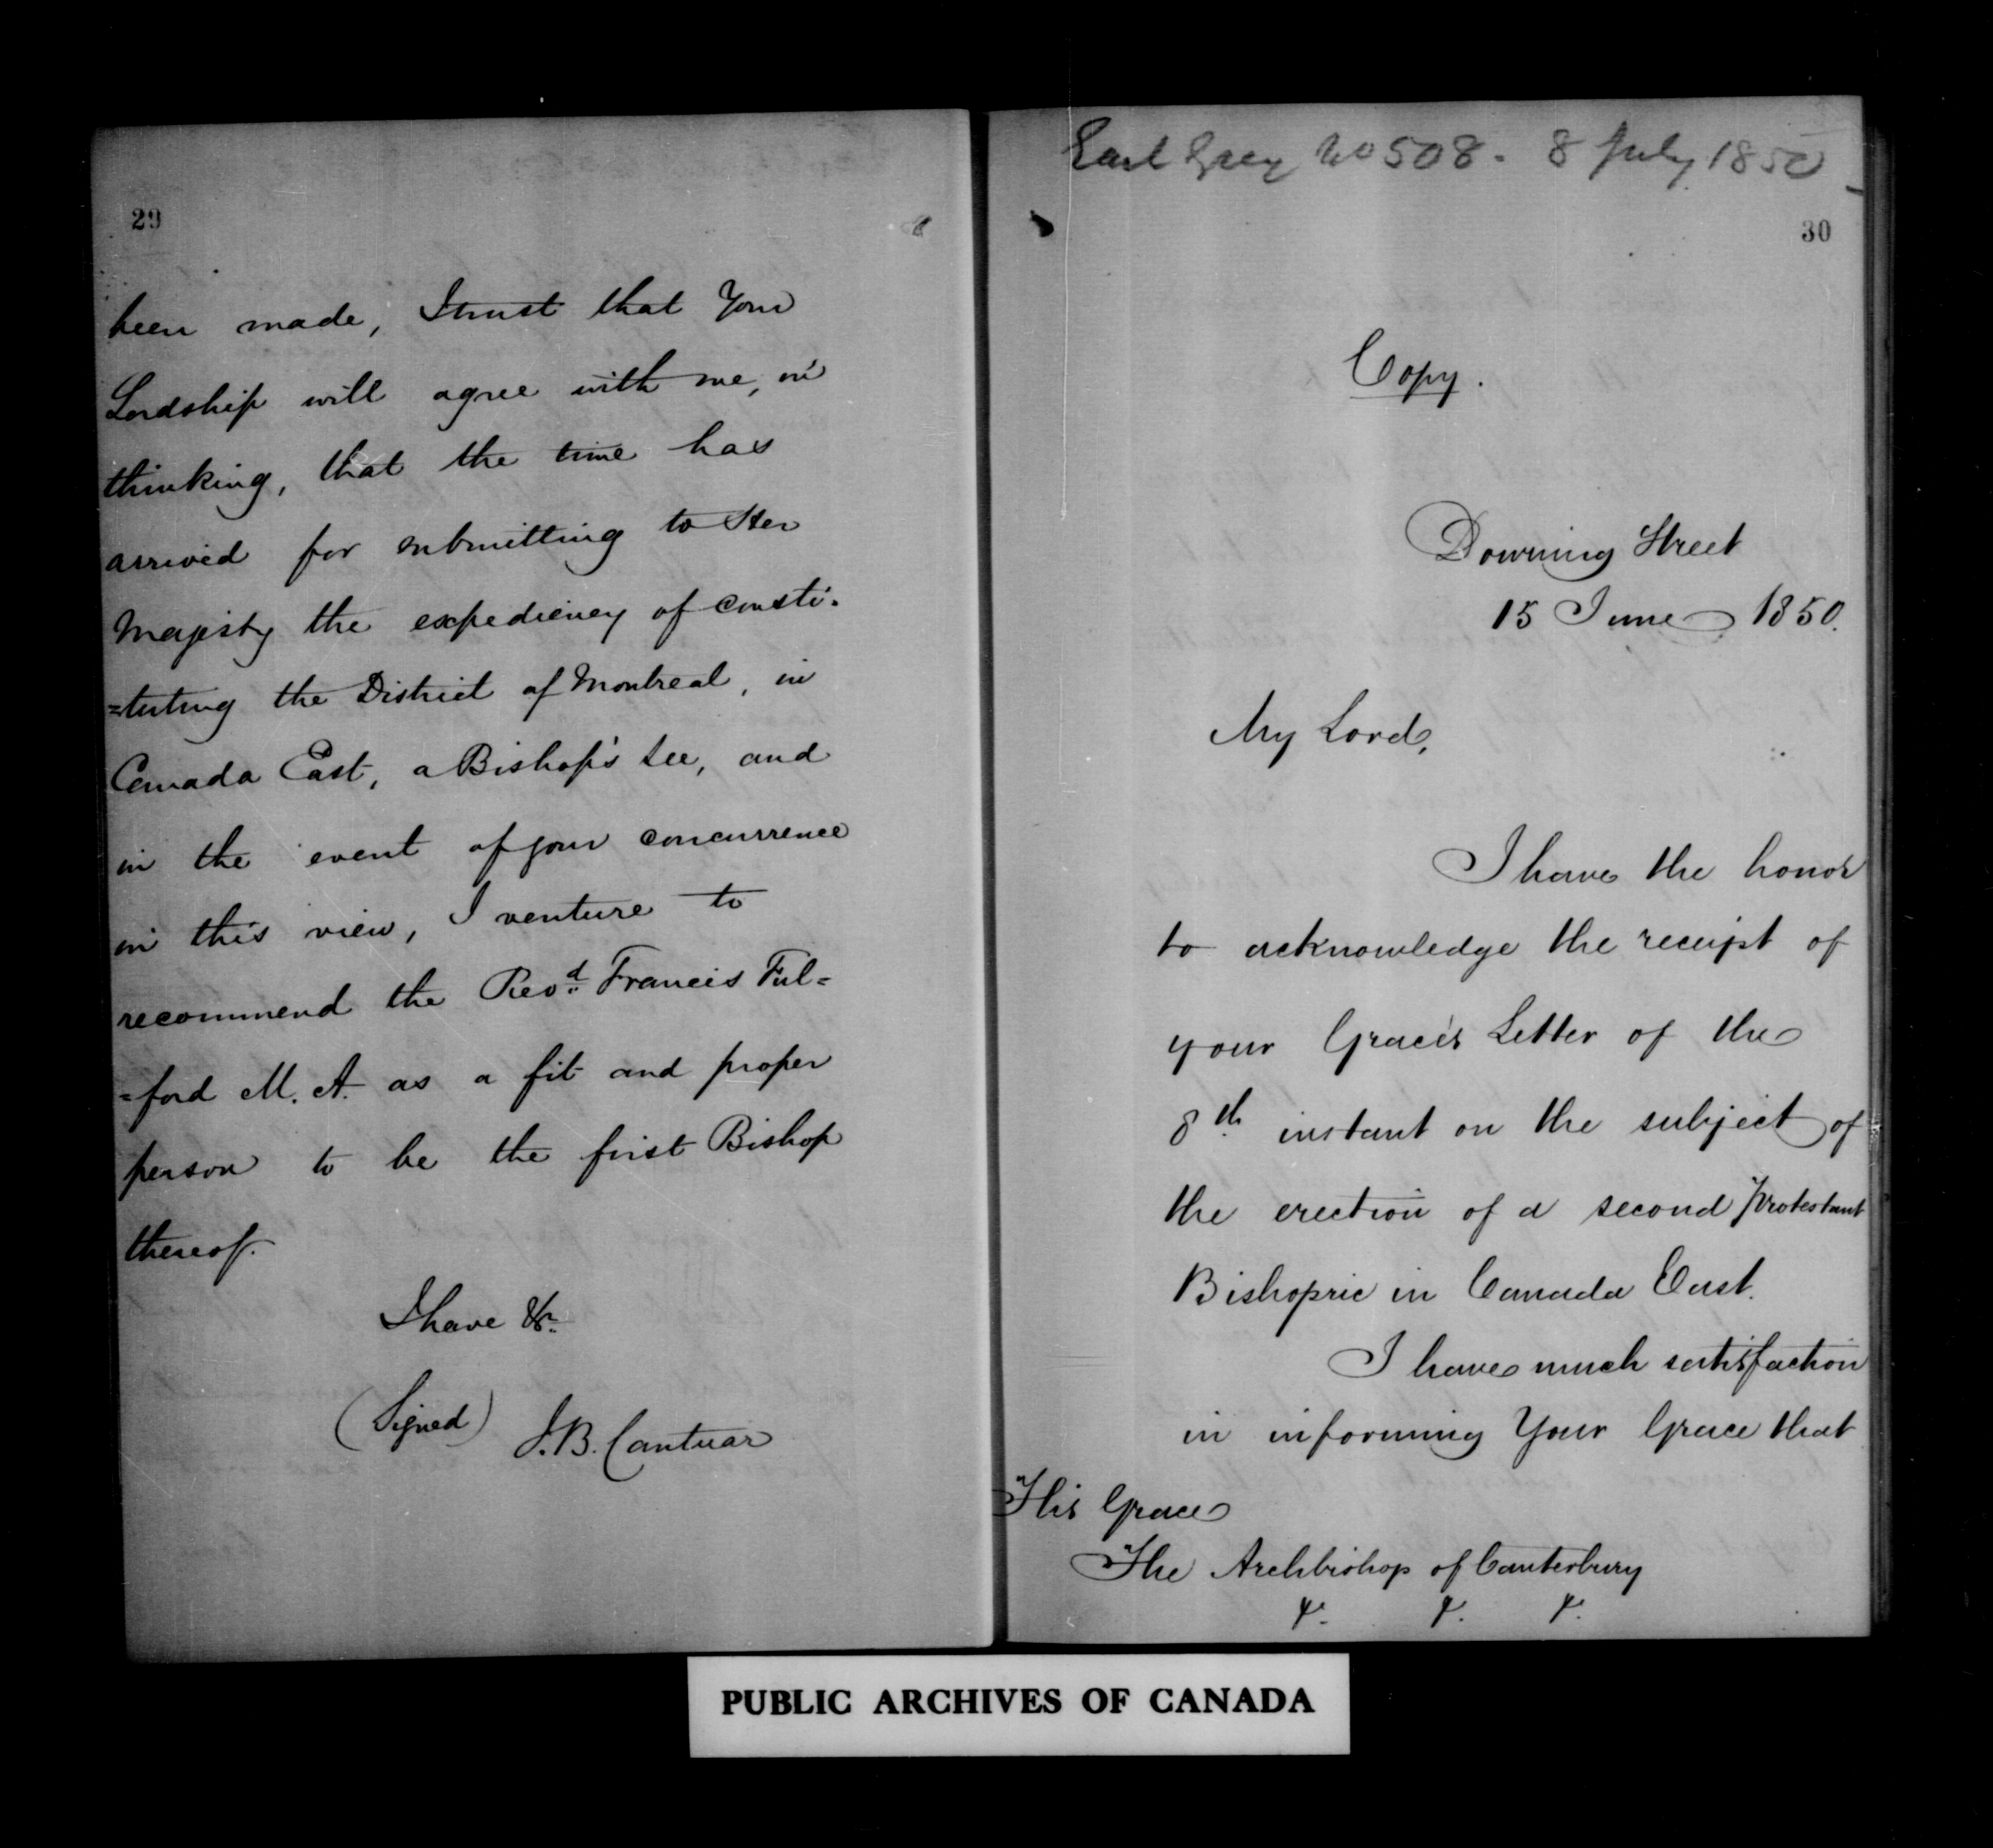 29
been made, I trust that Your
Lordship will agree with me, in
thinking, that the time has
arrived for submitting to Her
Majesty the expediency of consti-
=tuting the District of Montreal, in
Canada East, a Bishop's See, and
in the event of your concurrence
in this view, I venture to
recommend the Revd. Francis Ful=
=ford M. A. as a fit and proper
person to be the first Bishop
thereof.
I have &c.
(Signed) J. B. Cantuar
Earl Grey No 508. 8 July 1850
30
Copy.
Downing Street
15 June 1850.
My Lord,
I have the honor
to acknowledge the receipt of
your Grace's Letter of the
8th instant on the subject of
the erection of a second Protestant
Bishopric in Canada East.
I have much satisfaction
in informing Your Grace that
His Grace
The Archbishop of Canterbury
&c. &c. &c.
PUBLIC ARCHIVES OF CANADA